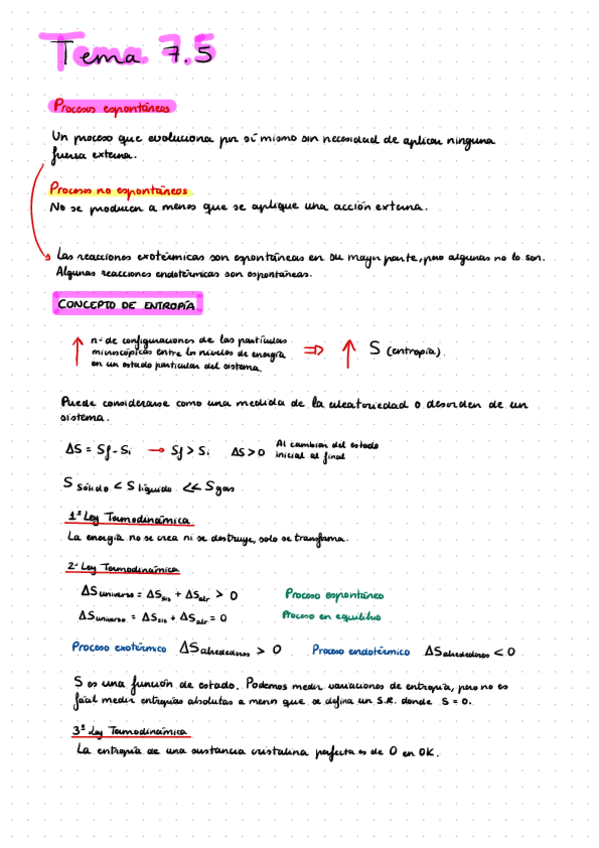 Tema 7.5
Procesos espontáneos
Un proceso que evoluciona por sí mismo sin necesidad de aplicar ninguna
fuerza externa.
Procesos no espontáneos
No se producen a menos que se aplique una acción externa.
Las reacciones exotérmicas son espontáneas en su mayor parte, pero algunas no lo son.
Algunas reacciones endotérmicas son espontáneas.
CONCEPTO DE ENTROPÍA
↑ nº de configuraciones de las partículas
microscópicas entre los niveles de energía
en un estado particular del sistema.
⇒ ↑ S (entropía).
Puede considerarse como una medida de la aleatoriedad o desorden de un
sistema.
ΔS = Sf - Si → Sf > Si ΔS > 0 Al cambiar del estado
inicial al final
S sólido < S líquido << S gas
1ª Ley Termodinámica
La energía no se crea ni se destruye, solo se transforma.
2ª Ley Termodinámica
ΔS universo = ΔS sis + ΔS alr > 0 Proceso espontáneo
ΔS universo = ΔS sis + ΔS alr = 0 Proceso en equilibrio
Proceso exotérmico ΔS alrededores > 0 Proceso endotérmico ΔS alrededores < 0
S es una función de estado. Podemos medir variaciones de entropía, pero no es
fácil medir entropías absolutas a menos que se defina un S.R. donde S = 0.
3ª Ley Termodinámica
La entropía de una sustancia cristalina perfecta es de 0 en 0K.